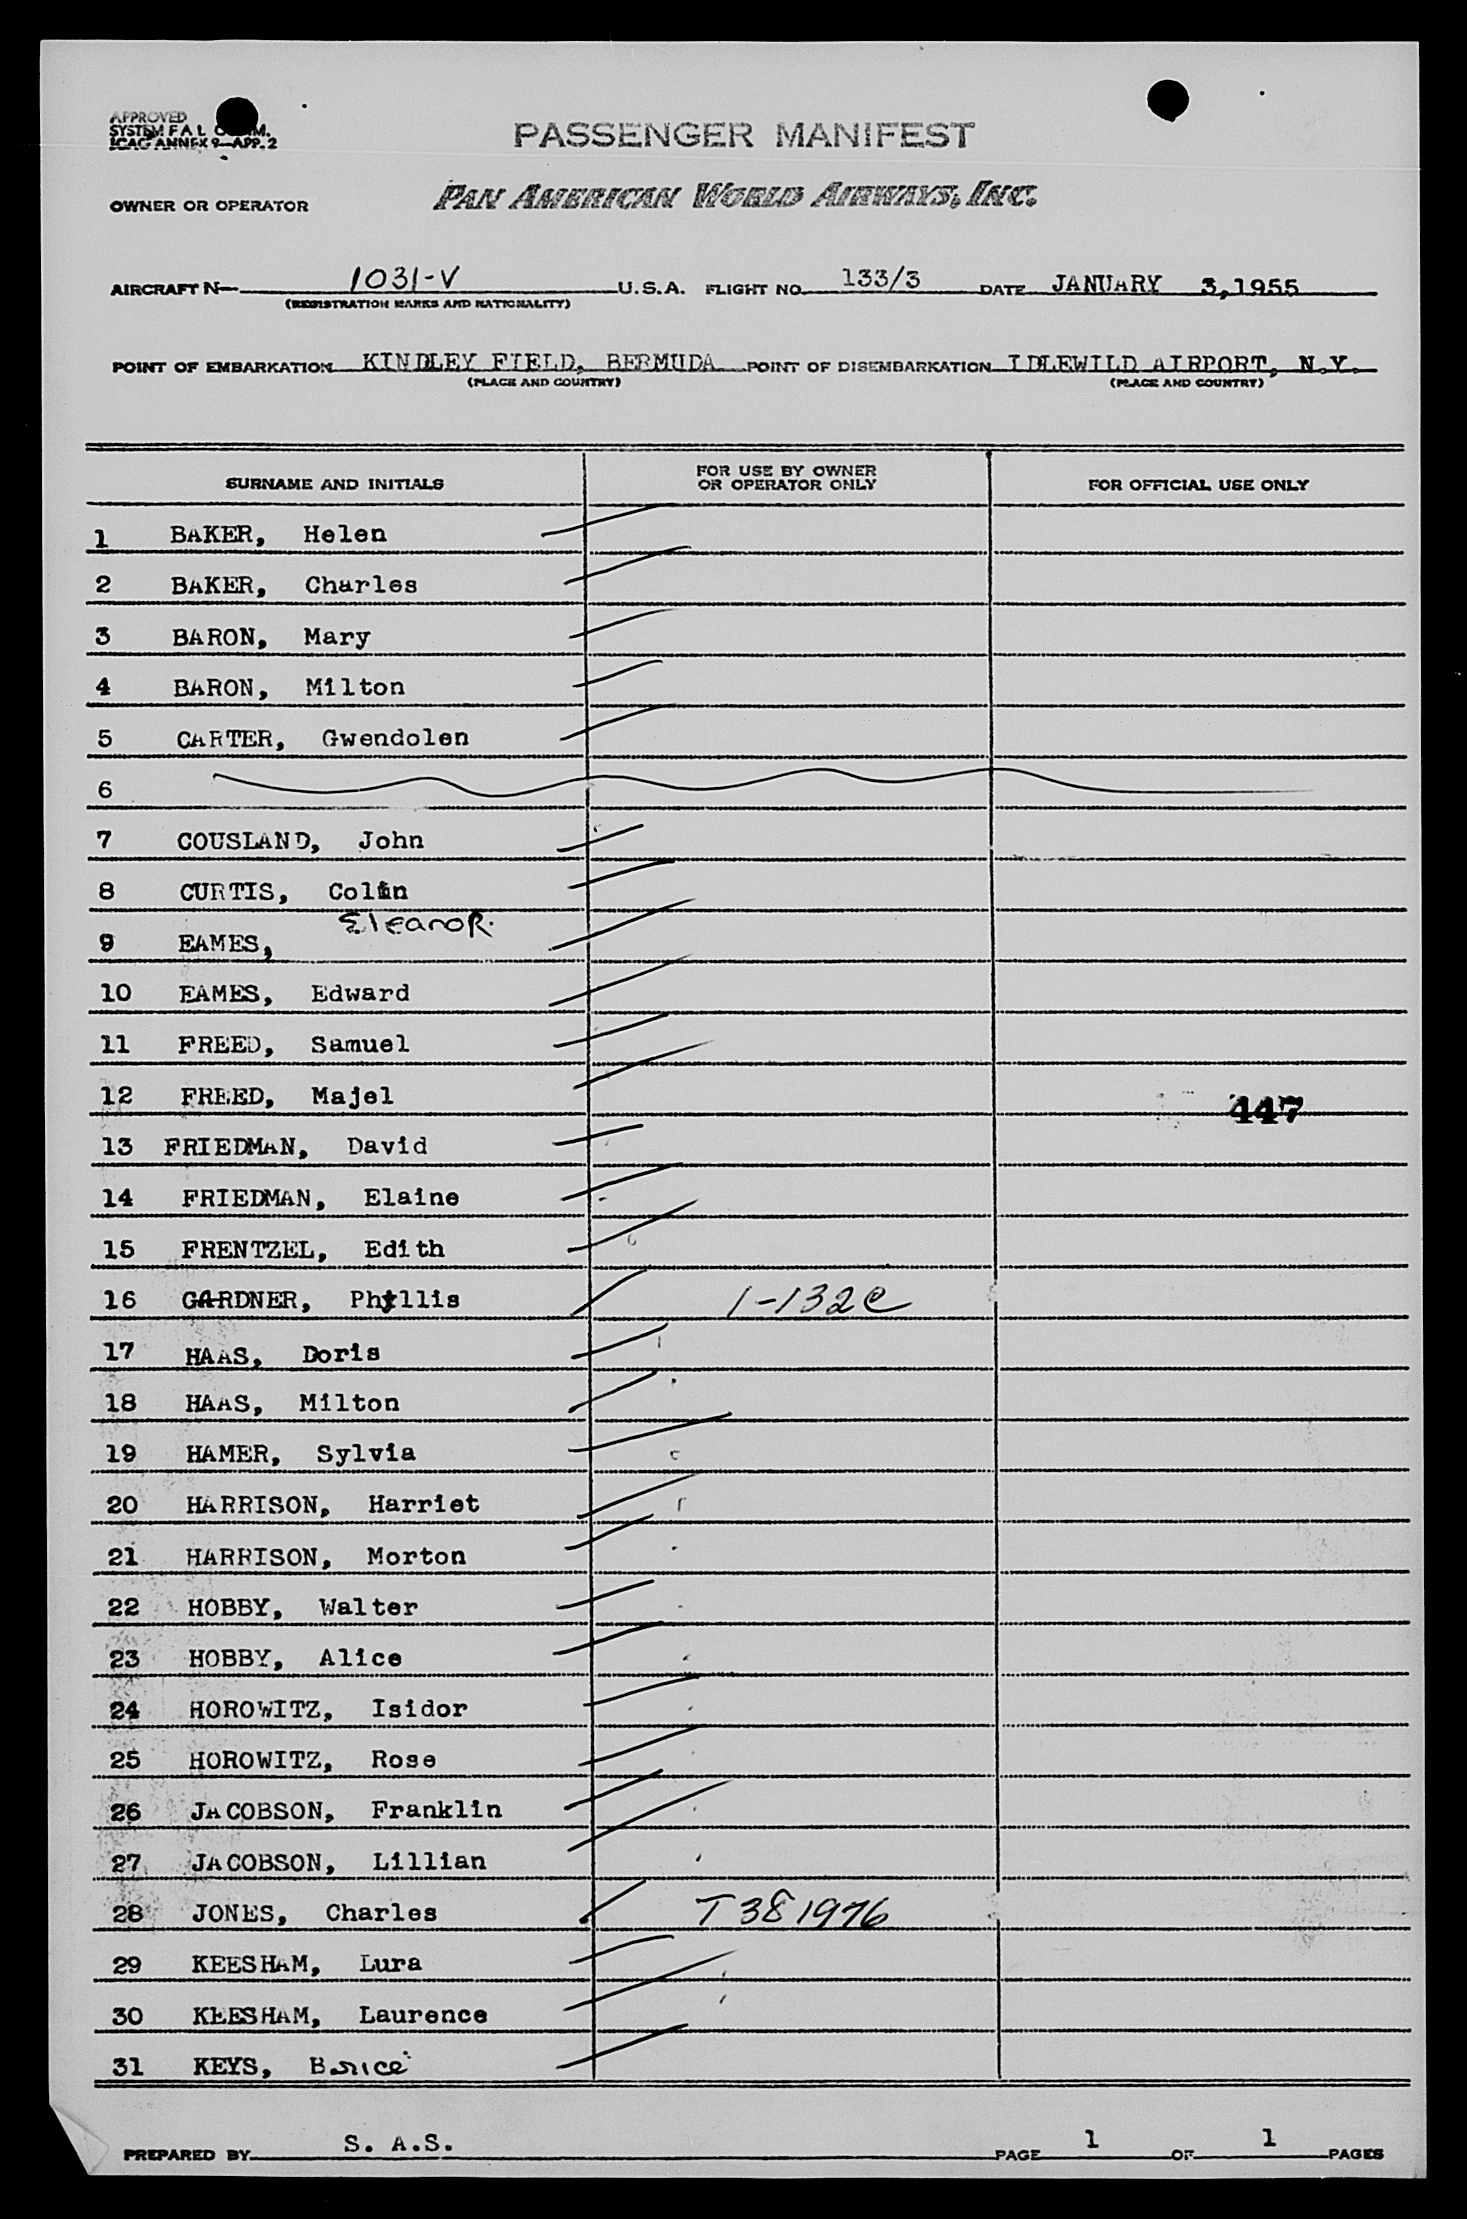 APPROVED
SYSTEM F A L COMM.
ICAO ANNEX 9-APP. 2
PASSENGER MANIFEST
OWNER OR OPERATOR PAN AMERICAN WORLD AIRWAYS, INC.
AIRCRAFT N- 1031-V U.S.A. FLIGHT NO. 133/3 DATE JANUARY 3,1955
(REGISTRATION MARKS AND NATIONALITY)
POINT OF EMBARKATION KINDLEY FIELD, BERMUDA POINT OF DISEMBARKATION IDLEWILD AIRPORT, N.Y.
(PLACE AND COUNTRY) (PLACE AND COUNTRY)
SURNAME AND INITIALS FOR USE BY OWNER OR OPERATOR ONLY FOR OFFICIAL USE ONLY
1 BAKER, Helen
2 BAKER, Charles
3 BARON, Mary
4 BARON, Milton
5 CARTER, Gwendolen
6
7 COUSLAND, John
8 CURTIS, Colin
9 EAMES, Eleanor
10 EAMES, Edward
11 FREED, Samuel
12 FREED, Majel 447
13 FRIEDMAN, David
14 FRIEDMAN, Elaine
15 FRENTZEL, Edith
16 GARDNER, Phyllis 1-132c
17 HAAS, Doris
18 HAAS, Milton
19 HAMER, Sylvia
20 HARRISON, Harriet
21 HARRISON, Morton
22 HOBBY, Walter
23 HOBBY, Alice
24 HOROWITZ, Isidor
25 HOROWITZ, Rose
26 JACOBSON, Franklin
27 JACOBSON, Lillian
28 JONES, Charles T381976
29 KEESHAM, Lura
30 KEESHAM, Laurence
31 KEYS,
PREPARED BY S. A.S. PAGE 1 OF 1 PAGES